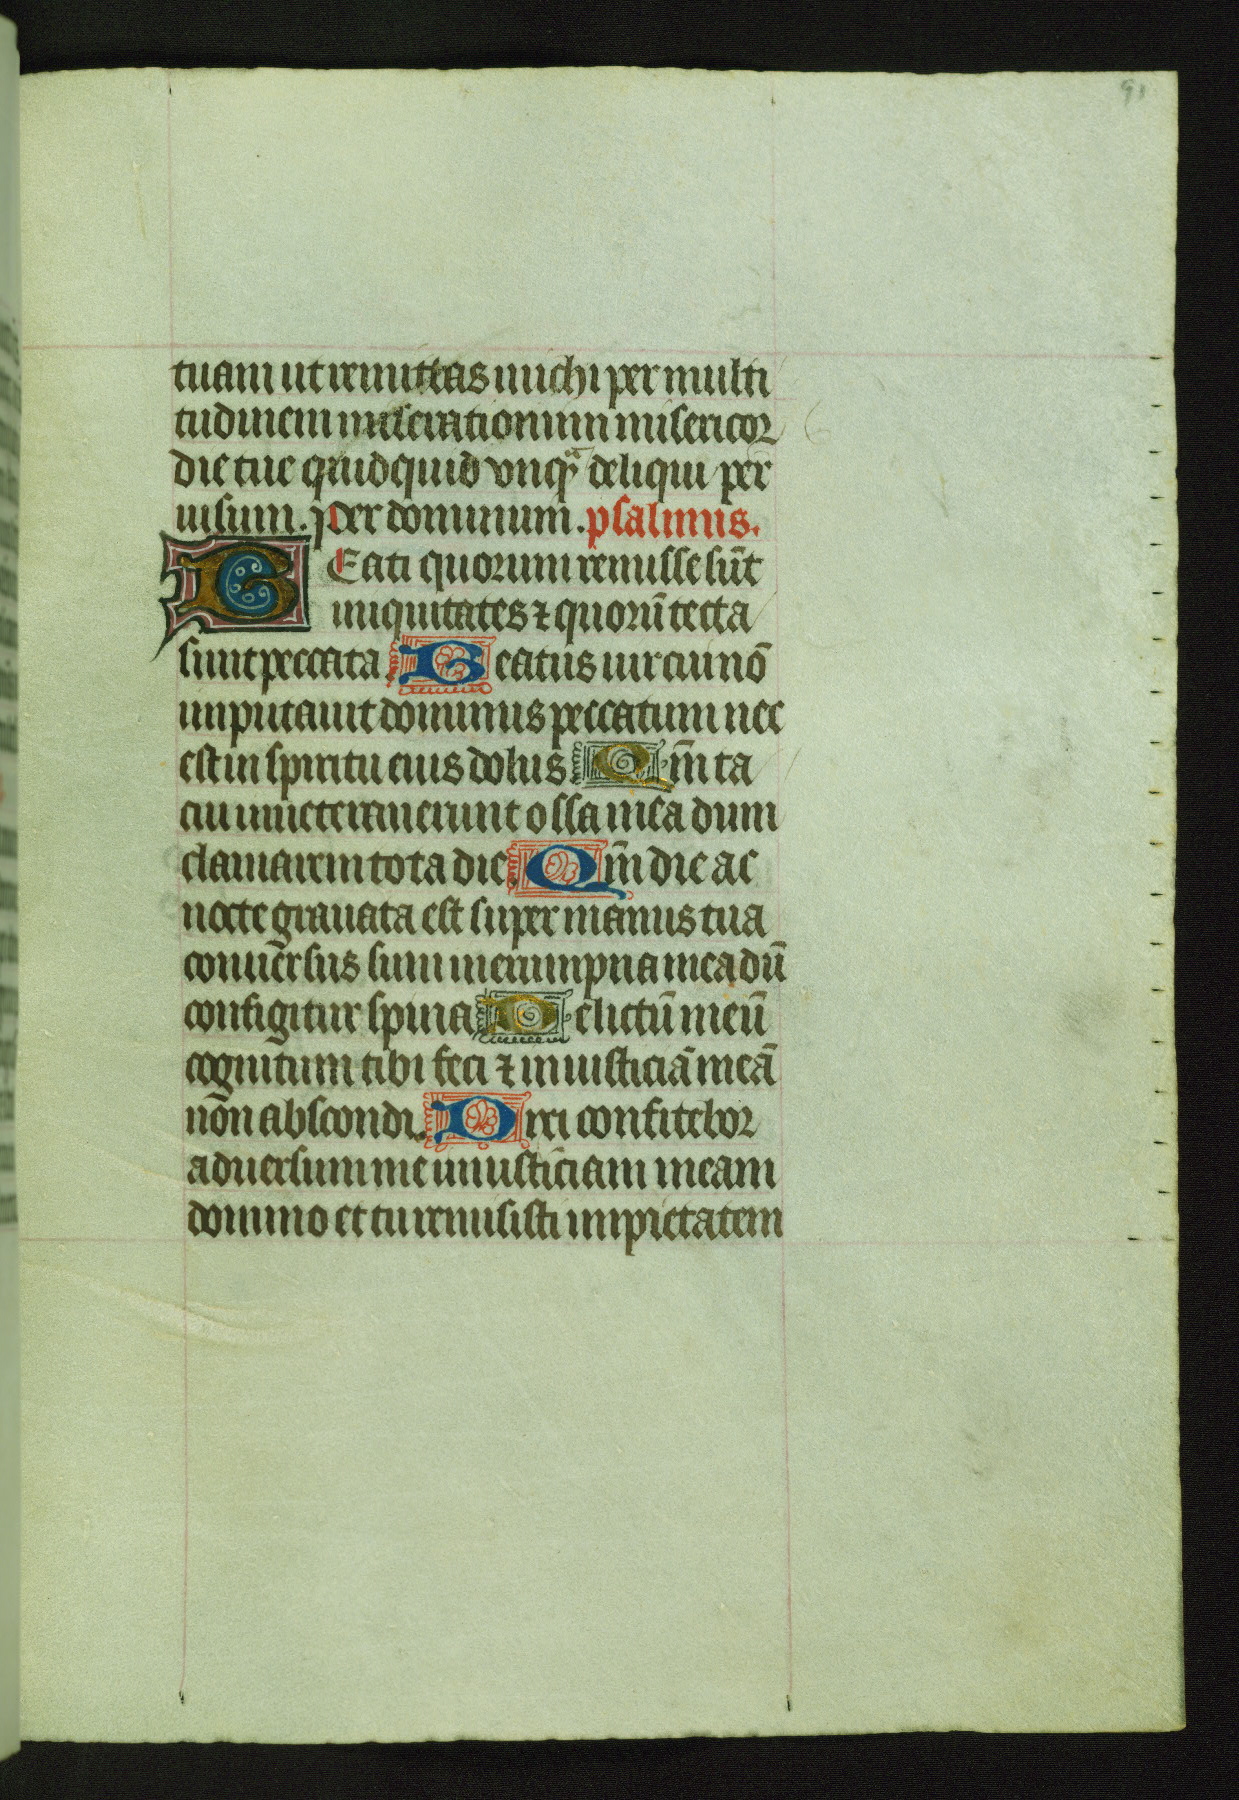 91
tuam ut remittas michi per multi
tudinem miserationum misericor
die tue quidquid vnqᵃ deliqui per
uisum. Per dominum. psalmus.
BEati quorum remisse sūt
iniquitates ⁊ quorū tecta
sunt peccata Beatus uir cui nō
imputauit dominus peccatum nec
est in spiritu eius dolus Qm̄ ta
cui inueterauerunt ossa mea dum
clamarem tota die Qm̄ die ac
nocte grauata est super manus tua
conuersus sum in erumpna mea dū
configitur spina Delictū meū
cognitum tibi feci ⁊ iniusticiā meā
non abscondi. Dixi confitebor
aduersum me iniusticiam meam
domino et tu remisisti impietatem